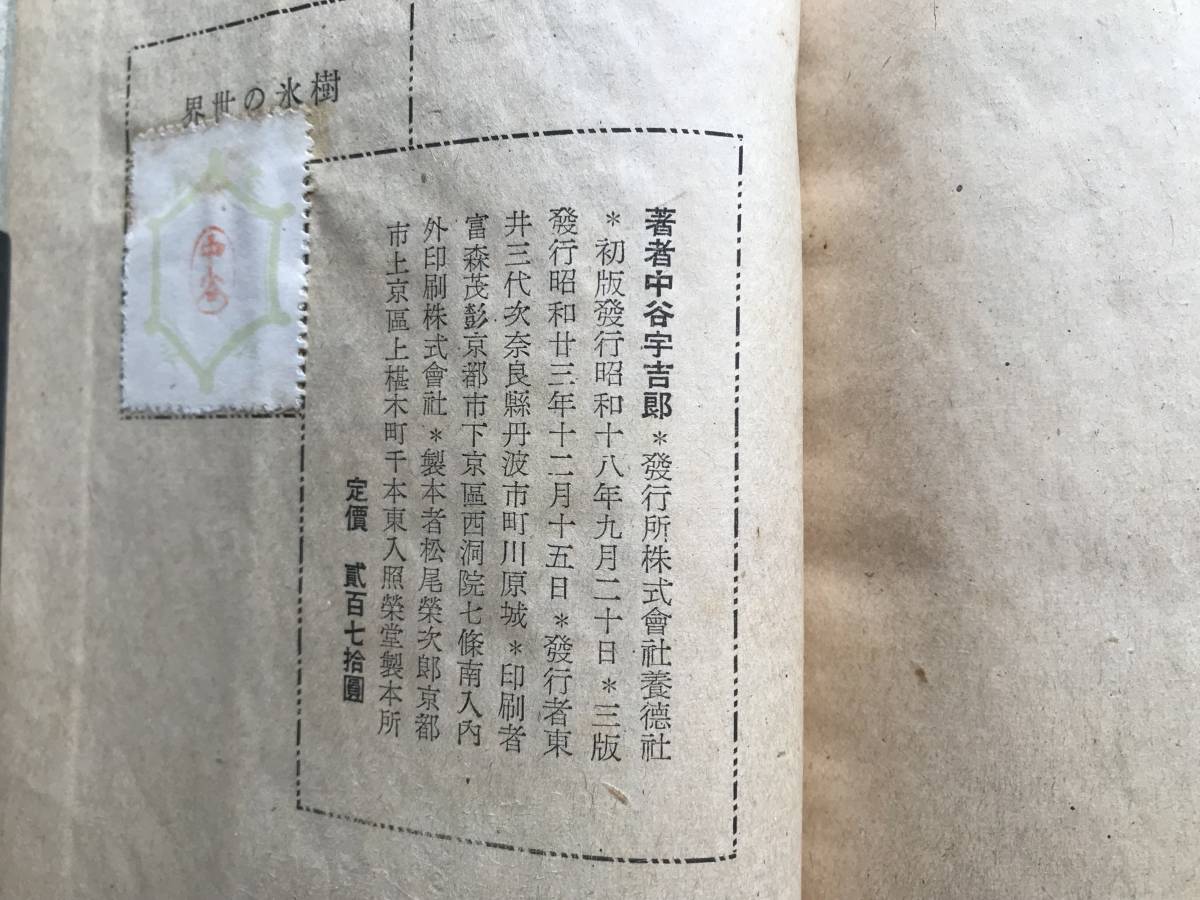 樹氷の世界
著者中谷宇吉郎＊發行所株式會社養德社
＊初版發行昭和十八年九月二十日＊三版
發行昭和廿三年十二月十五日＊發行者東
井三代次奈良縣丹波市町川原城＊印刷者
富森茂彭京都市下京區西洞院七條南入內
外印刷株式會社＊製本者松尾榮次郎京都
市上京區上椹木町千本東入照榮堂製本所
定價　貳百七拾圓